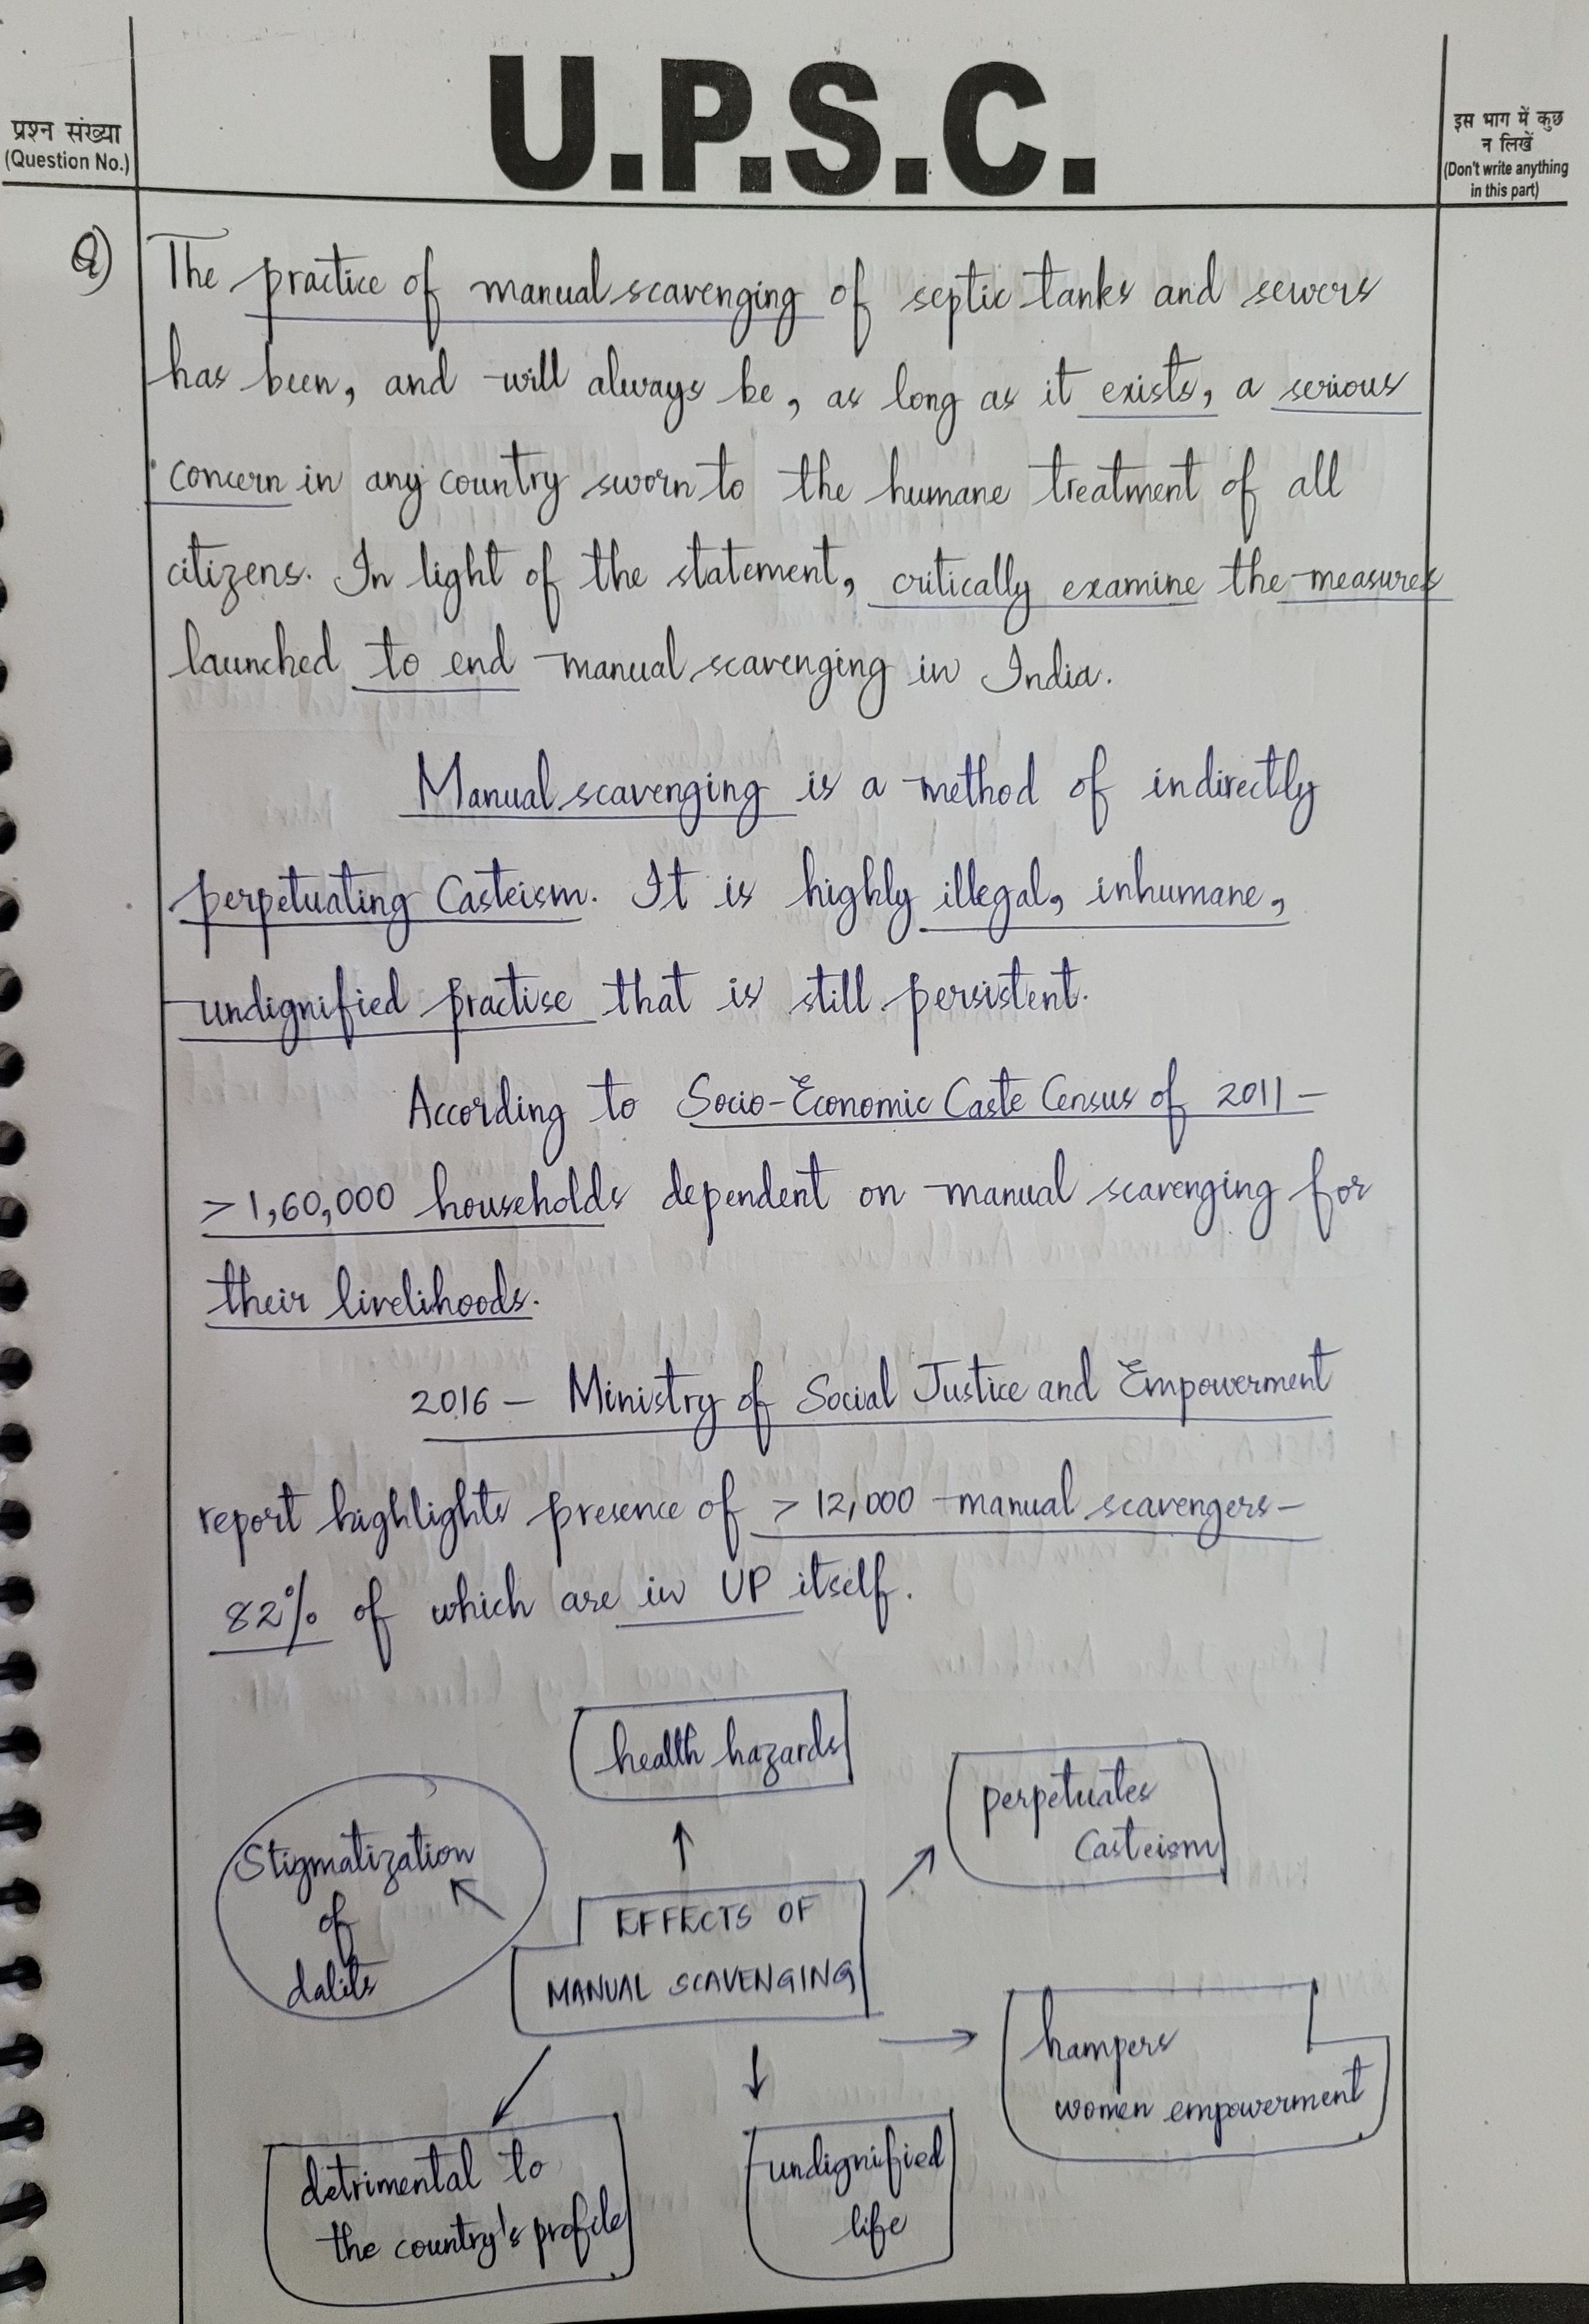 U.P.S.C.
प्रश्न संख्या
(Question No.)
इस भाग में कुछ
न लिखें
(Don't write anything
in this part)
Q) The practice of manual scavenging of septic tanks and sewers
has been, and will always be, as long as it exists, a serious
concern in any country sworn to the humane treatment of all
citizens. In light of the statement, critically examine the measures
launched to end manual scavenging in India.
Manual scavenging is a method of indirectly
perpetuating Casteism. It is highly illegal, inhumane,
undignified practise that is still persistent.
According to Socio-Economic Caste Census of 2011 -
> 1,60,000 households dependent on manual scavenging for
their livelihoods.
2016 - Ministry of Social Justice and Empowerment
report highlights presence of > 12,000 manual scavengers -
82% of which are in UP itself.
health hazards
perpetuates
Casteism
Stigmatization
of
dalits
EFFECTS OF
MANUAL SCAVENGING
hampers
women empowerment
detrimental to
the country's profile
undignified
life